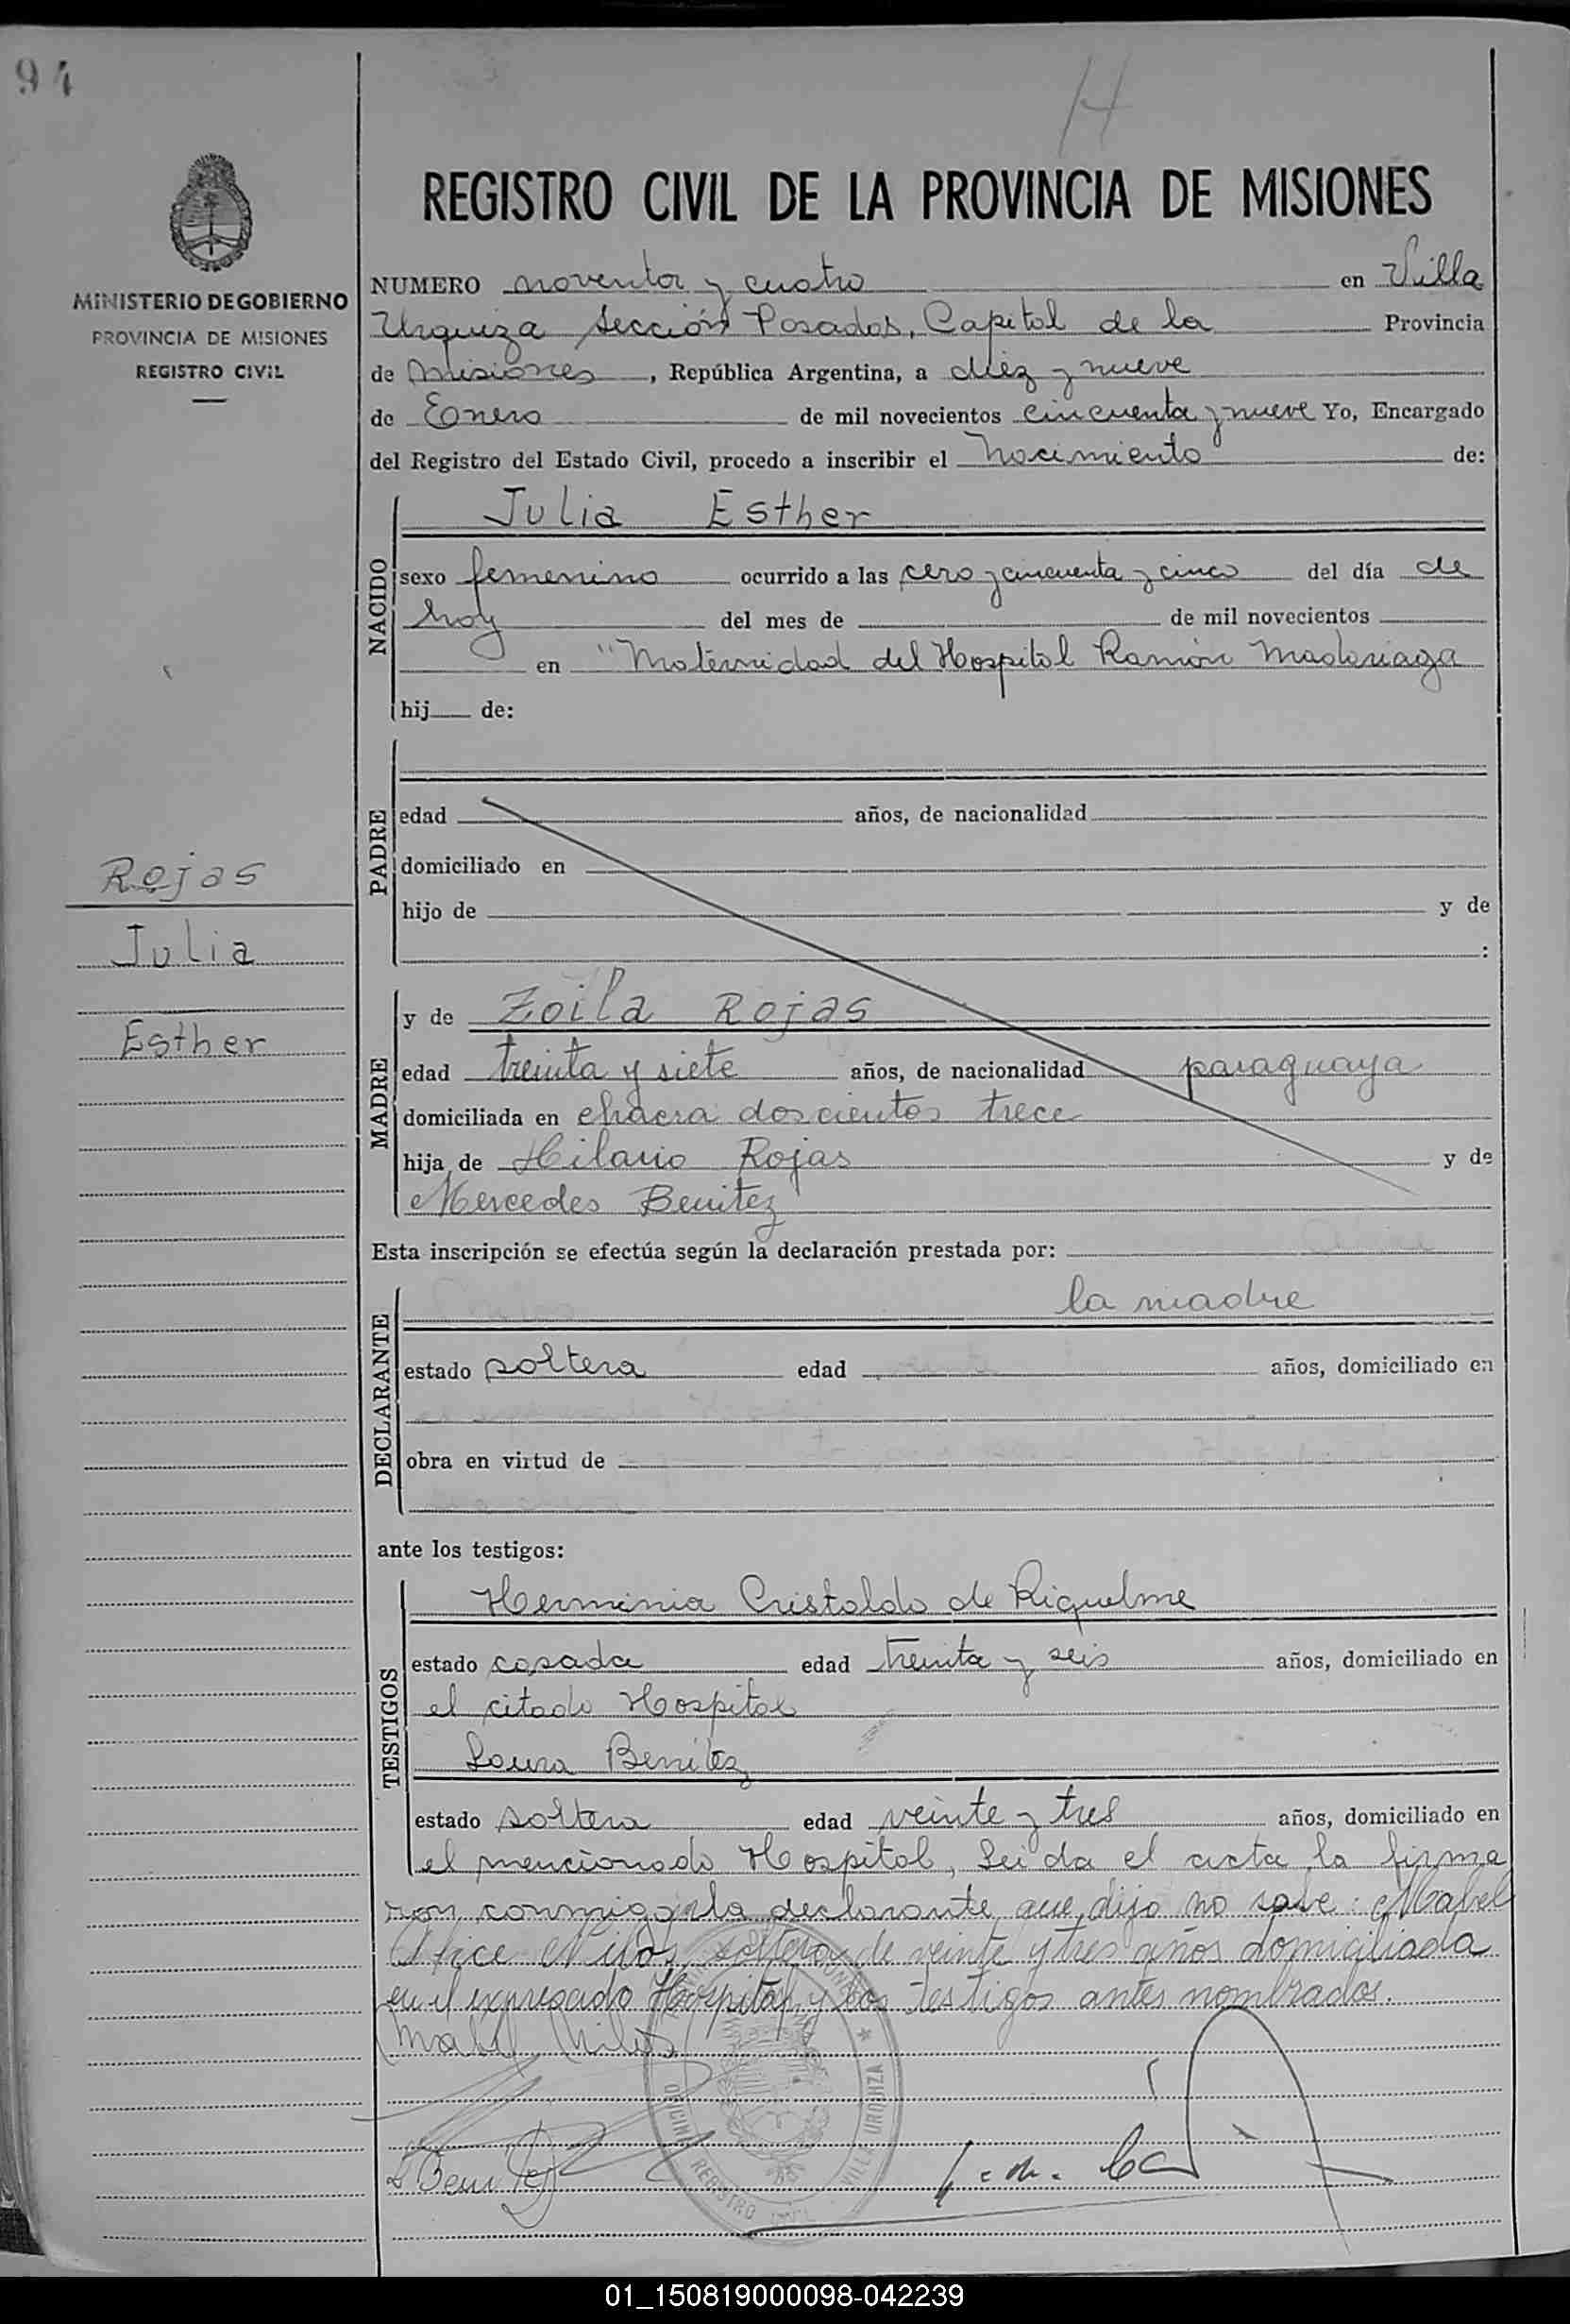 94
H
REGISTRO CIVIL DE LA PROVINCIA DE MISIONES
MINISTERIO DE GOBIERNO
PROVINCIA DE MISIONES
REGISTRO CIVIL
NUMERO noventa y cuatro en Villa
Urquiza Sección Posadas, Capital de la Provincia
de Misiones, República Argentina, a diez y nueve
de Enero de mil novecientos cincuenta y nueve Yo, Encargado
del Registro del Estado Civil, procedo a inscribir el nacimiento de:
NACIDO
Julia Esther
sexo femenino ocurrido a las cero y cincuenta y cinco del día de
hoy del mes de de mil novecientos
en "Maternidad del Hospital Ramón Madariaga
hij de:
PADRE
edad años, de nacionalidad
domiciliado en
hijo de y de
:
Rojas
Julia
Esther
MADRE
y de Zoila Rojas
edad treinta y siete años, de nacionalidad paraguaya
domiciliada en chacra doscientos trece
hija de Hilario Rojas y de
Mercedes Benitez
Esta inscripción se efectúa según la declaración prestada por:
DECLARANTE
la madre
estado soltera edad años, domiciliado en
obra en virtud de
ante los testigos:
TESTIGOS
Herminia Cristaldo de Riquelme
estado casada edad treinta y seis años, domiciliado en
el citado Hospital
Laura Benitez
estado soltera edad veinte y tres años, domiciliado en
el mencionado Hospital, Leida el acta la firma
ron conmigo la declarante que dijo no sabe: Mabel
Alice Nilos, soltera, de veinte y tres años domiciliada
en el expresado Hospital y los testigos antes nombrados.
Mabel Nilos
L Benitez
OFICINA REGISTRO CIVIL VILLA URQUIZA
01_150819000098-042239